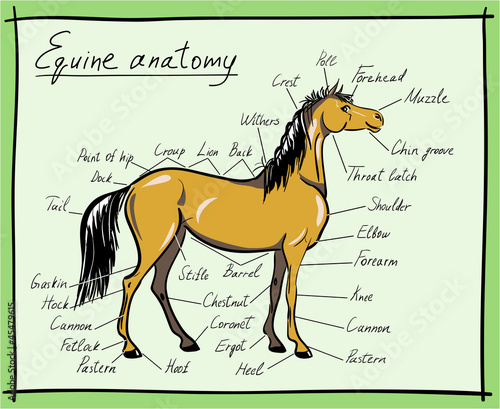 Equine anatomy
Poll
Forehead
Crest
Muzzle
Withers
Chin groove
Throat latch
Point of hip
Croup
Lion
Back
Dock
Tail
Shoulder
Elbow
Forearm
Gaskin
Hock
Stifle
Barrel
Chestnut
Knee
Cannon
Coronet
Cannon
Fetlock
Ergot
Pastern
Hoof
Heel
Pastern
Adobe Stock | #45479615